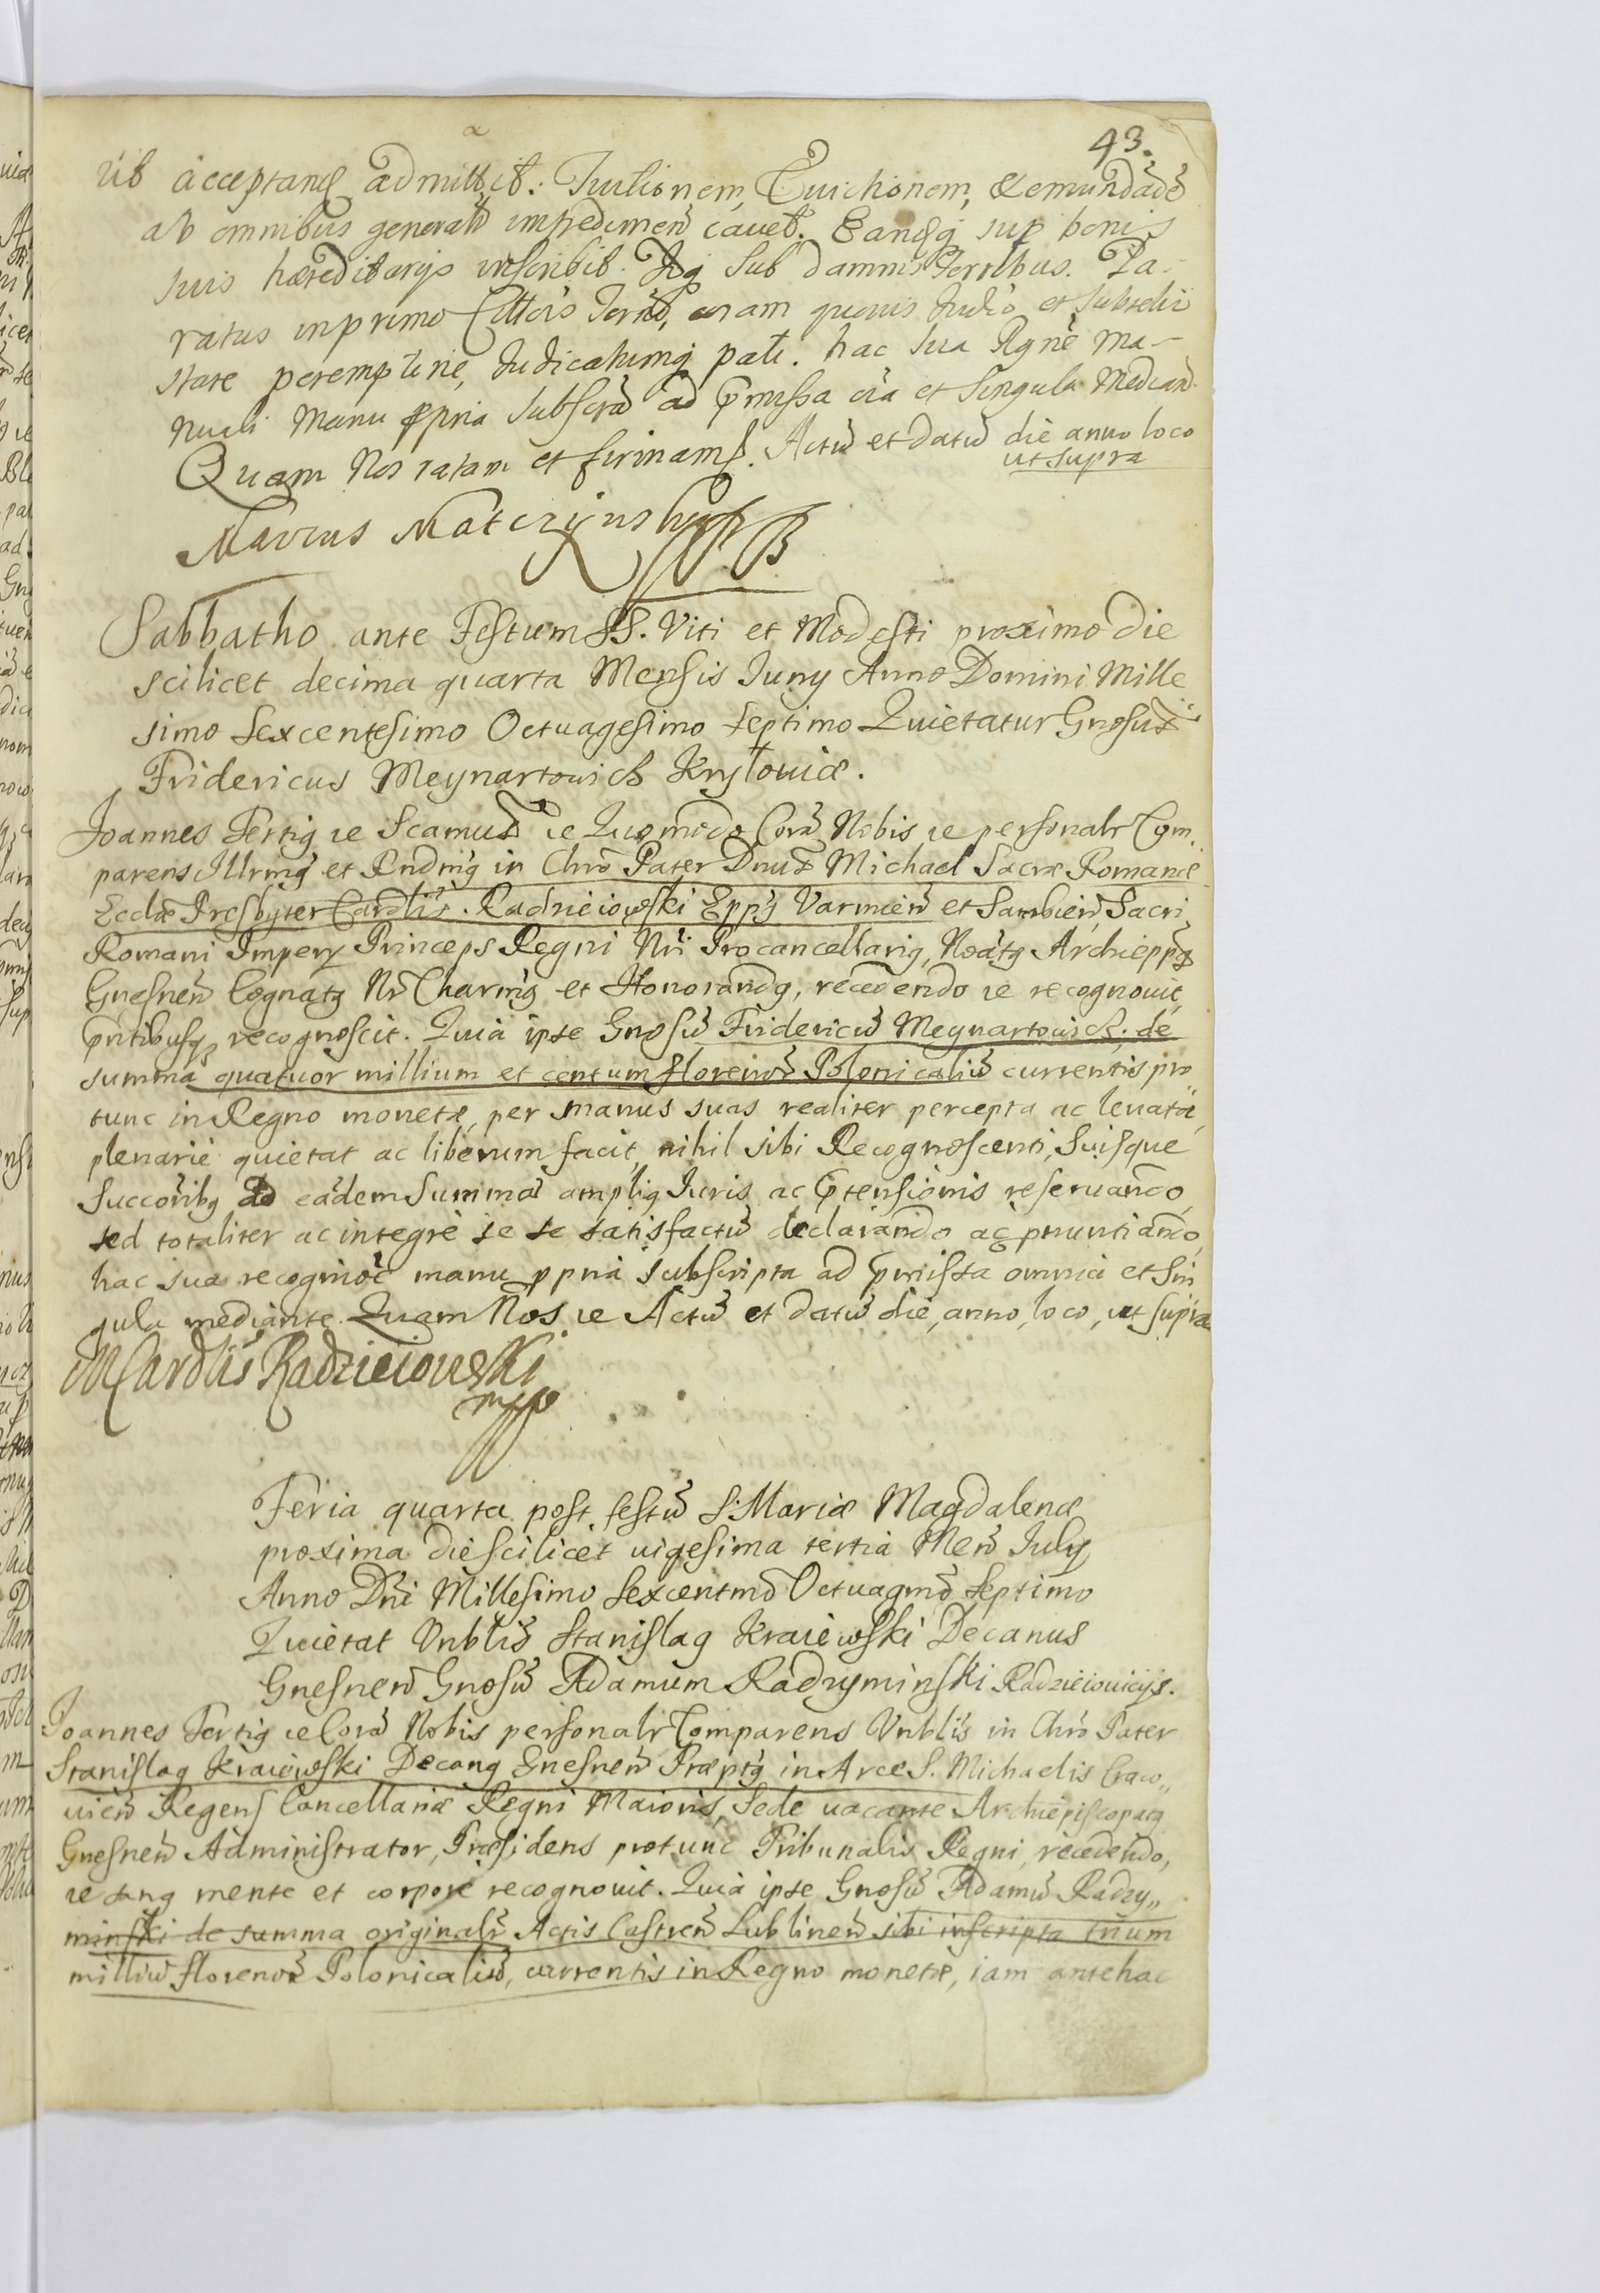 43.
ut acceptand admittit. Tuitionem, Evictionem, & emundãdõ
ab omnibus general impedimen cavet. Eandq sup bonis
suis hæreditarijs inscribit. Idq sub damnis Terribus. Pa-
ratus in primo Citters Termo, coram quovis Judio et subselii
stare peremptorie, Judicatumq pati. hac sua Rgne Ma-
nuali Manu ppria Subscrã ad pmissa oia et singula Median.
Quam Nos ratam et firmams. Actũ et datũ die anno loco
ut supra
Marcus Matczynsky
Sabbatho ante Festum SS. Viti et Modesti proximo die
scilicet decima quarta Mensis Juny Anno Domini Mille
simo Sexcentesimo Octuagesimo septimo Quietatur Gnosus
Fridericus Meynartowich Kryloviæ.
Joannes Tertiq ɾc Scamus ɾc Quomodo Corã Nobis ɾc personalr Com,
parens Illrmq et Rndmq in Chro Pater Dnus Michael Sacræ Romanæ
Ecclæ Presbyter Cardlis. Radzieiowski Eppq Varmien et Sambien Sacri
Romani Impery Princeps Regni Nri Procancellariq, Noatq Archieppq
Gnesnen Cognatq Nr Charmq et Honorandq, recedendo ɾc recognouit,
pntibusq recognoscit. Quia ipse Gnosũ Fridericũ Meynartouich, de
summa quatuor millium et centum florenoꝝ Polonicaliũ currentis pro
tunc in Regno monetæ, per manus suas realiter percepta ac leuata
plenarie quietat ac liberum facit, nihil sibi Recognoscenti, Suisque
Succoribq ad eadem Summã ampliq Juris ac ptensionis reseruando,
sed totaliter ac integre se se satisfactũ declarando ac pnuntiando,
hac sua recognioe manu ppria subscripta ad pmissa omnia et Sin
gula mediante. Quam Nos ɾc Actũ et datũ die, anno, loco, ut supra
M Cardlis Radzieiowski
mpp
Feria quarta post festũ S. Mariæ Magdalenæ
proxima die scilicet uigesima tertia Men July
Anno Dni Millesimo Sexcentmo Octuagmo Septimo
Quietat Vnblis Stanislaq Kraiewski Decanus
Gnesnen Gnosũ Adamum Radzyminski Radzieiouicijs.
Joannes Tertiq ɾc Corã Nobis personalr Comparens Vnblis in Chro Pater
Stanislaq Kraiewski Decanq Gnesnen Præptq in Arce S. Michaelis Craco„
uien Regens Cancellariæ Regni Maioris, Sede uacante Archiepiscopatq
Gnesnen Administrator, Præsidens protunc Tribunalis Regni, recedendo,
ɾc sanq mente et corpore recognouit. Quia ipse Gnosũ Adamũ Radzy„
minski de summa originalr Actis Castren Lublinen sibi inscripta trium
milliũ florenoꝝ Polonicaliũ, currentis in Regno monetæ, iam antehac